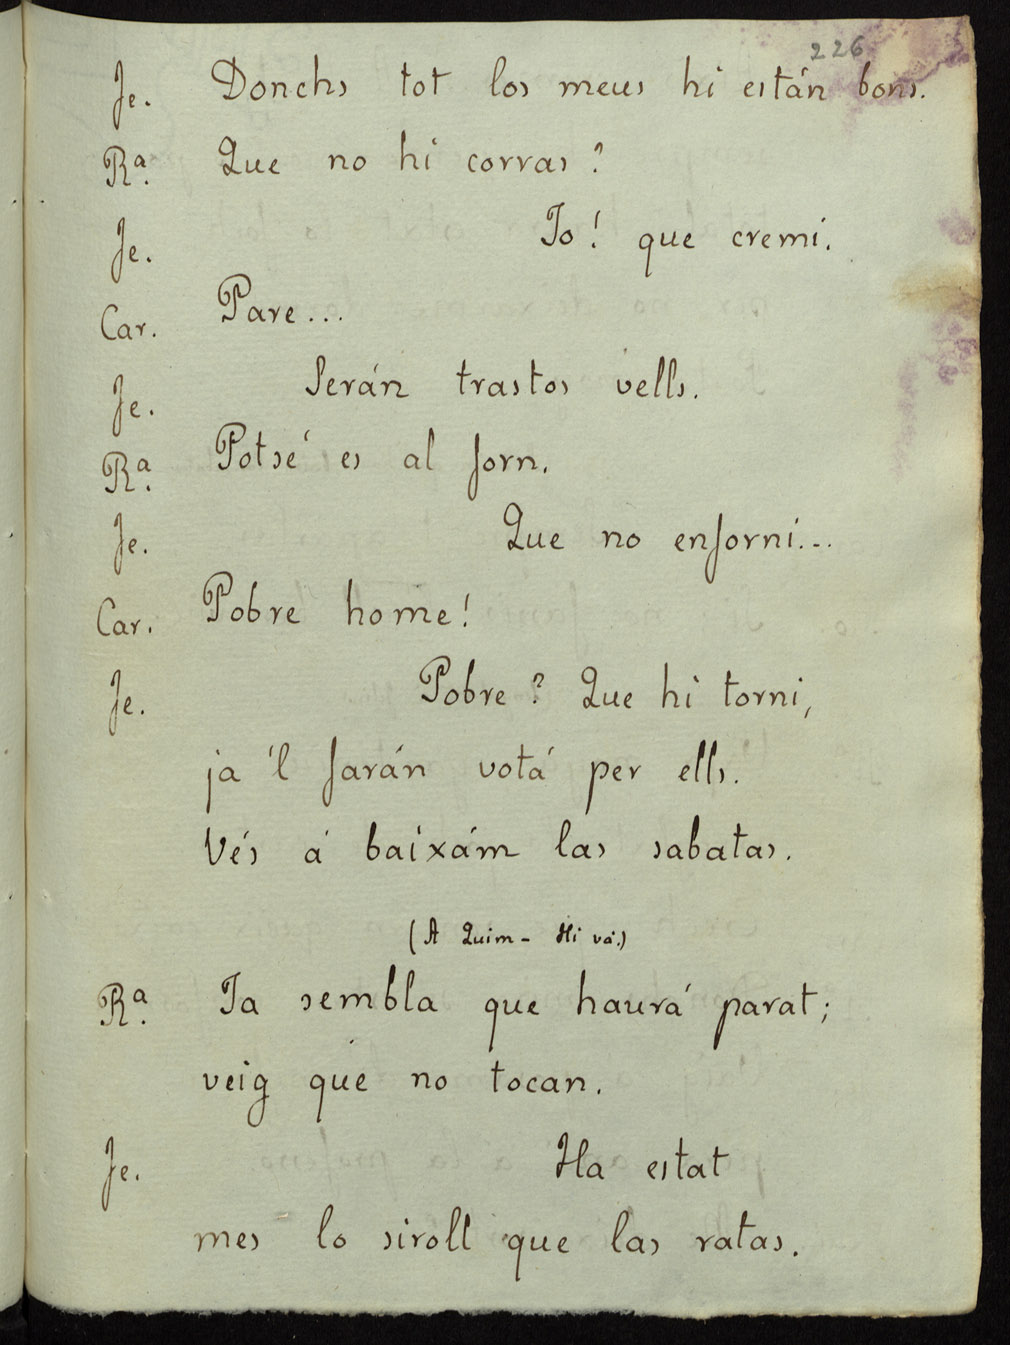 226
Je. Donchs tot los meus hi están bons.
Rª. Que no hi corras?
Je. Jo! que cremi.
Car. Pare...
Je. Serán trastos vells.
Rª. Potsé es al forn.
Je. Que no enforni...
Car. Pobre home!
Je. Pobre? Que hi torni,
ja 'l farán votá per ells.
Vés á baixám las sabatas.
(A Quim - Hi vá.)
Rª. Ja sembla que haurá parat;
veig que no tocan.
Je. Ha estat
mes lo siroll que las ratas.